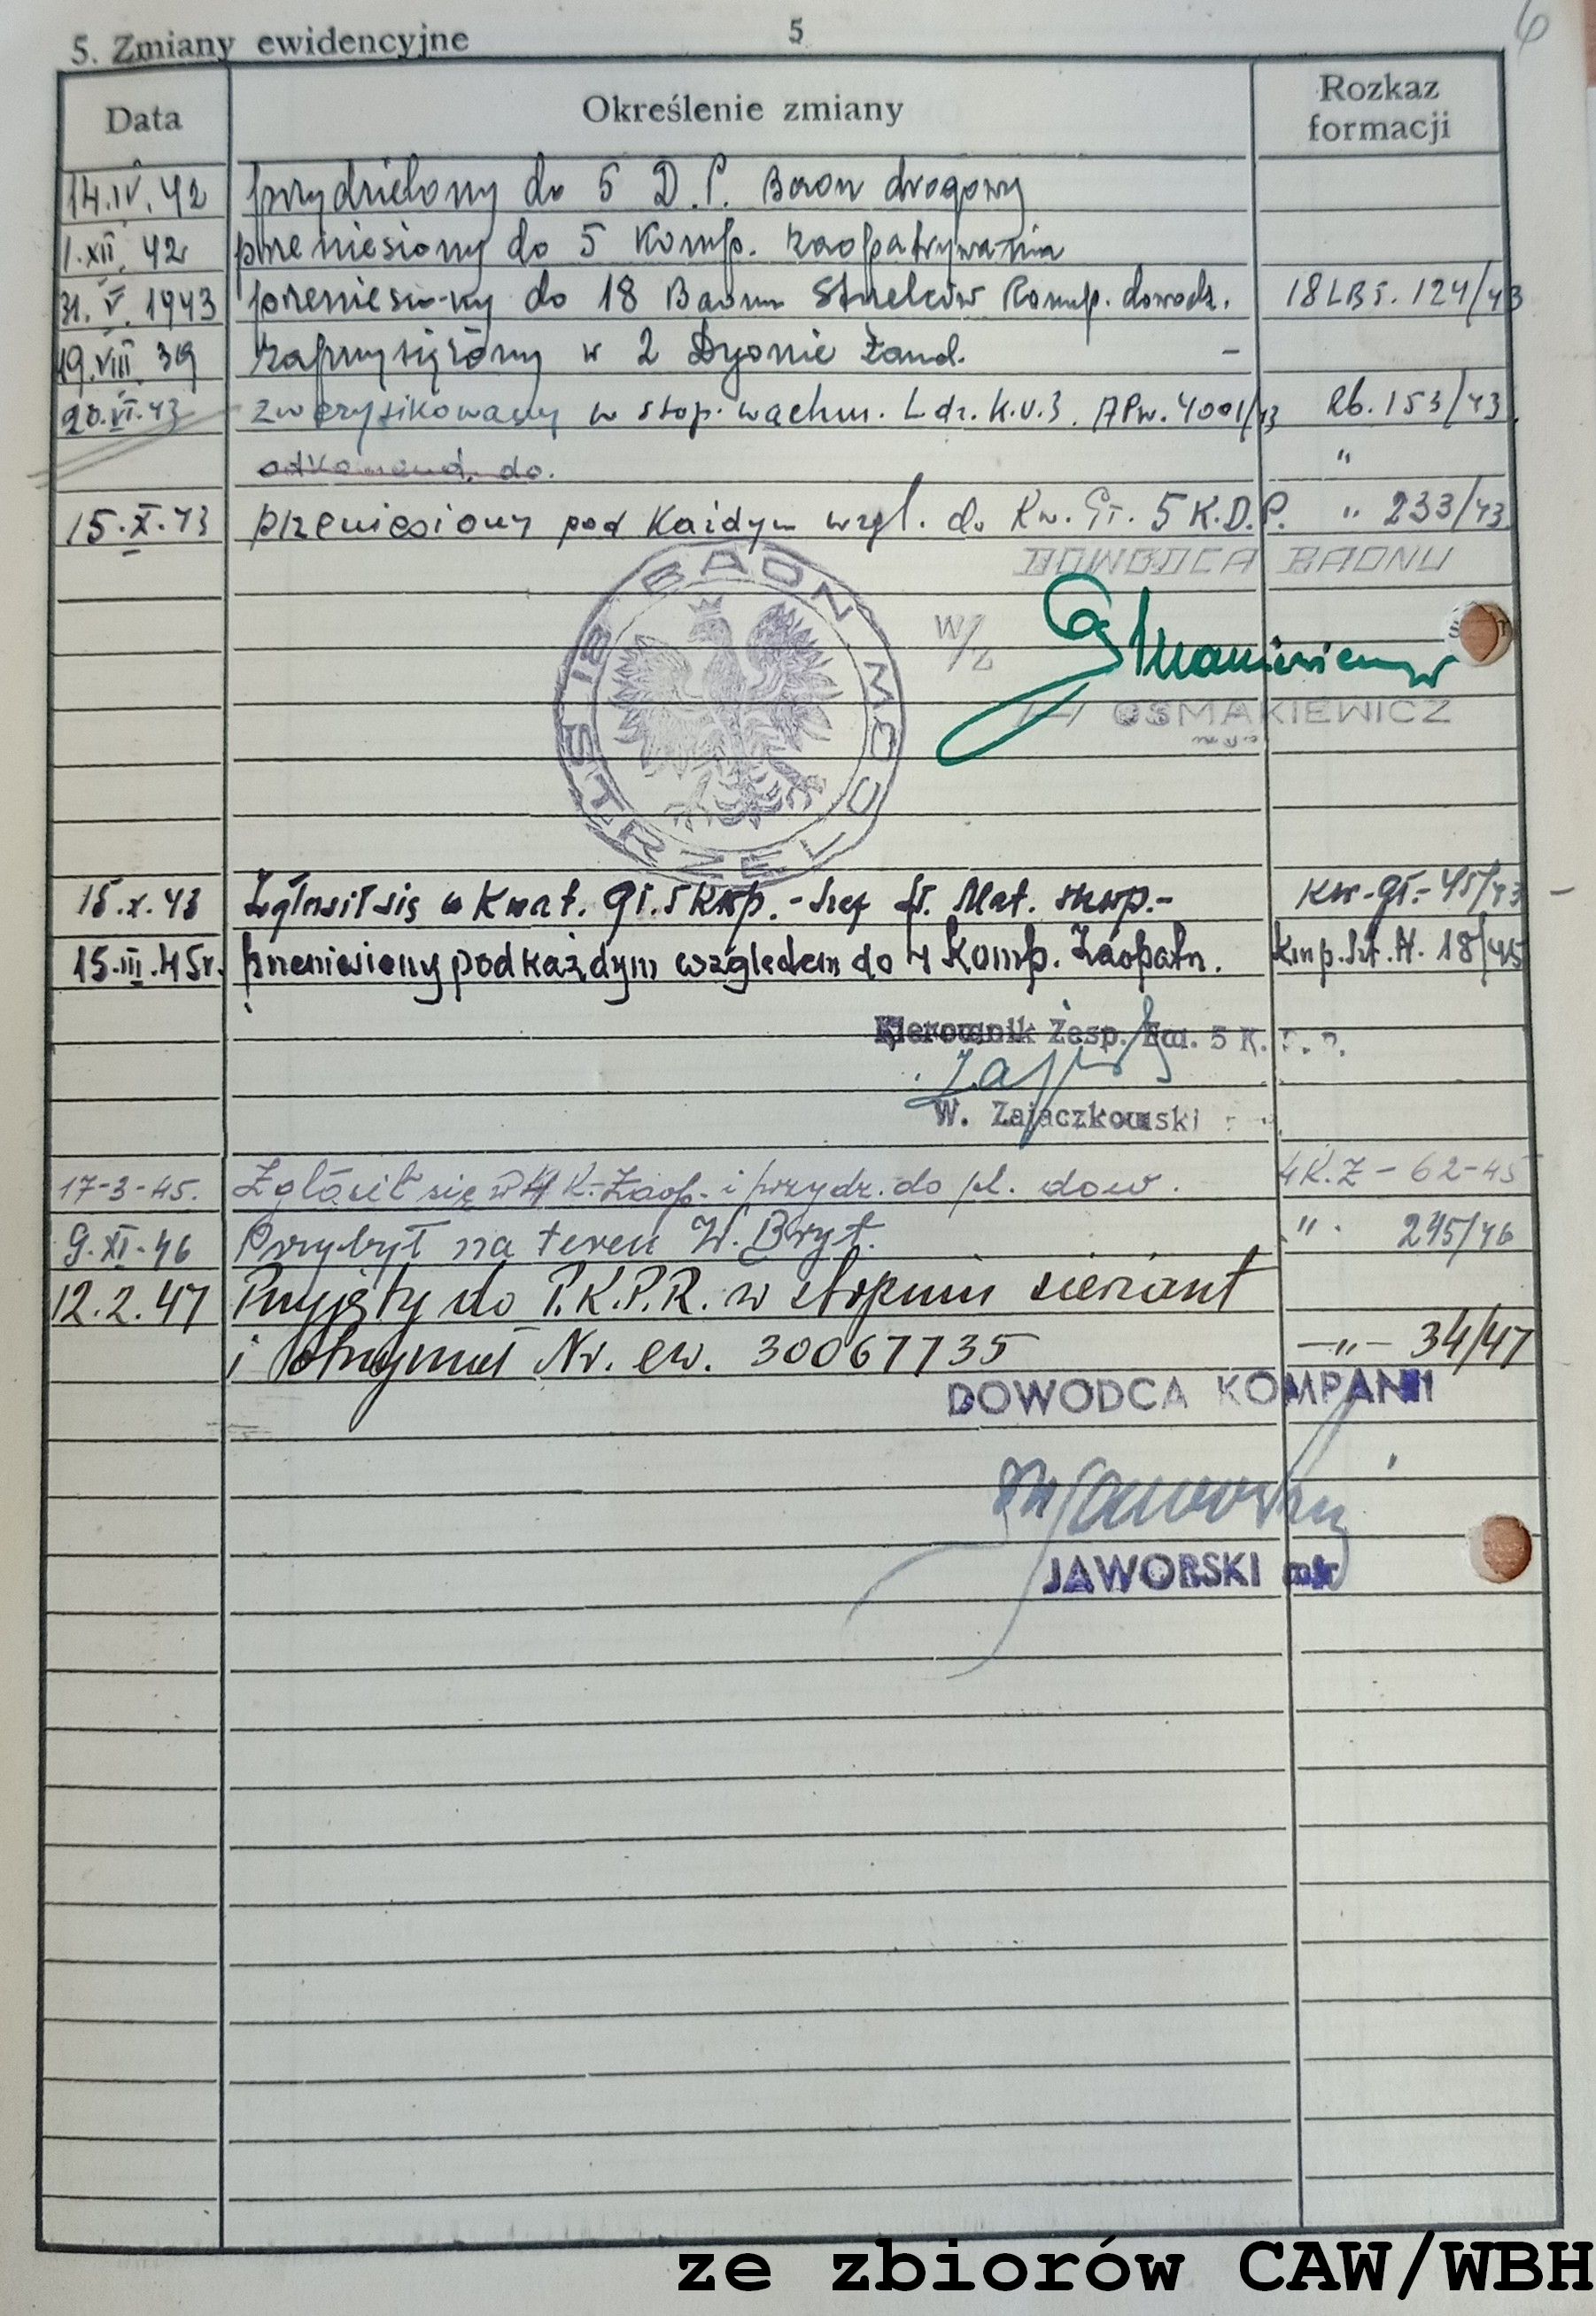 5. Zmiany ewidencyjne 5 6
Data Określenie zmiany Rozkaz formacji
14.IV.42 przydzielony do 5 D.P. Baon drogowy
1.XII.42 przeniesiony do 5 Komp. zaopatrywania
31.V.1943 przeniesio-ny do 18 Baonu Strzelców Komp. dowodz. 18 LBS. 124/43
19.VIII.39 zaprzysiężony w 2 Dyonie Żand. -
20.VI.43 zweryfikowany w stop. wachm. L.dz. K.U.3. APw. 4001/43 Rb. 153/43.
odkomend. do. "
15.X.43 przeniesiony pod każdym wzgl. do Kw. Gł. 5 K.D.P. " 233/43
DOWÓDCA BAONU
18 BAON STRZELCÓW
W/Z
OSMAKIEWICZ
mjr
15.X.43 Zgłosił się w Kwat. Gł. 5 Kdp. - Kw-gł.- 45/43 -
15.III.45r. przeniesiony pod każdym względem do 4 Komp. Zaopatr. Kmp.Szt.N. 18/45
Kierownik Zesp. Ew. 5 K.D.P.
W. Zajączkowski
17-3-45. Zgłosił się w 4 K. Zaop. i przydz. do pl. dow. 4K.Z - 62-45
9.XI-46 Przybył na teren W. Bryt. " 245/46
12.2.47 Przyjęty do P.K.P.R. w stopniu sierżant
i otrzymał Nr. ew. 30067735 -"- 34/47
DOWODCA KOMPANII
JAWORSKI mjr
ze zbiorów CAW/WBH